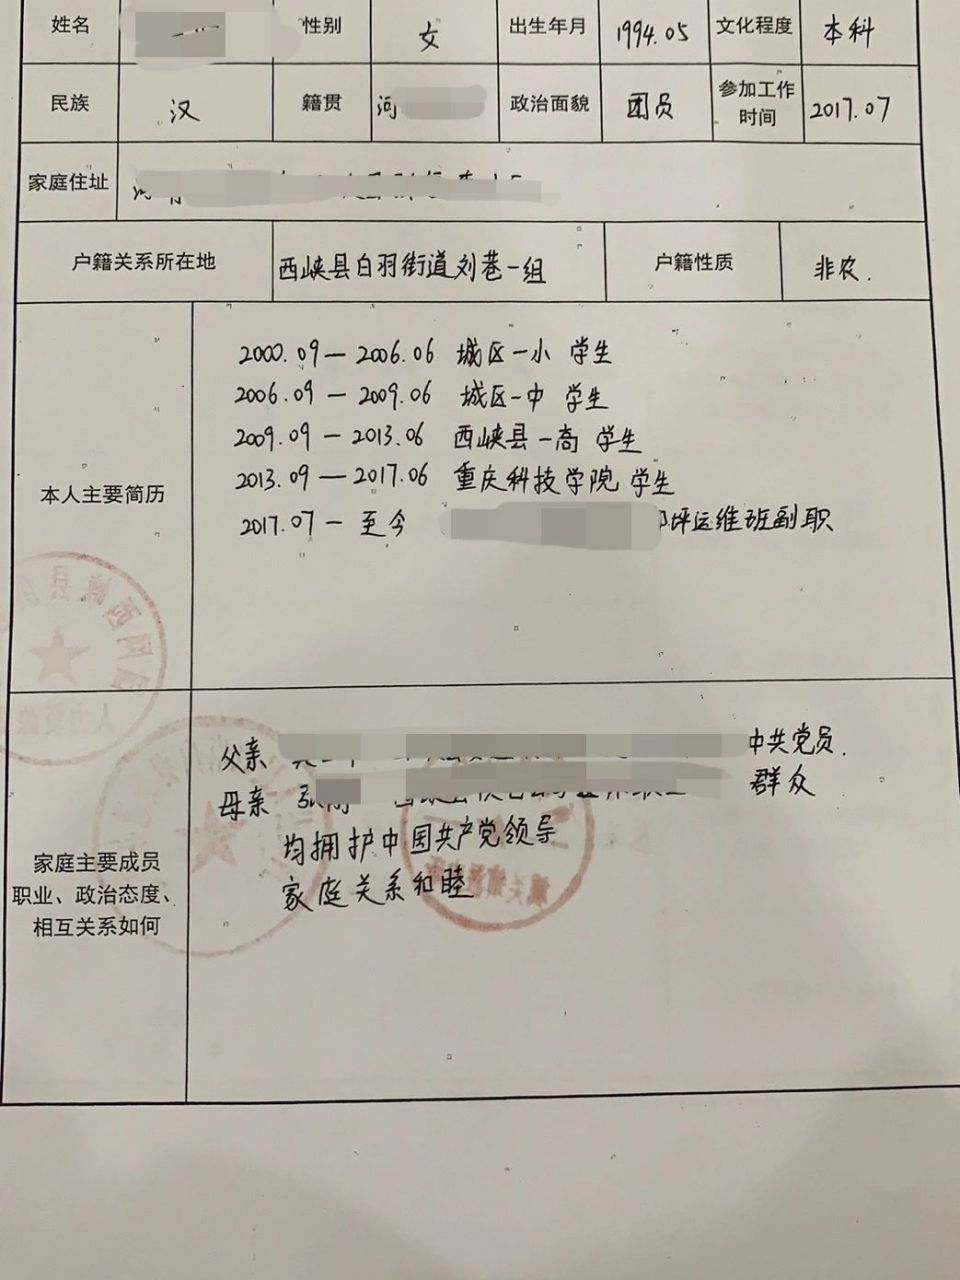 姓名 性别 女 出生年月 1994.05 文化程度 本科
民族 汉 籍贯 河 政治面貌 团员 参加工作时间 2017.07
家庭住址
户籍关系所在地 西峡县白羽街道刘巷一组 户籍性质 非农.
本人主要简历
2000.09—2006.06 城区一小 学生
2006.09—2009.06 城区一中 学生
2009.09—2013.06 西峡县一高 学生
2013.09—2017.06 重庆科技学院 学生
2017.07—至今 坪运维班副职
家庭主要成员
职业、政治态度、
相互关系如何
父亲 中共党员.
母亲 群众
均拥护中国共产党领导
家庭关系和睦